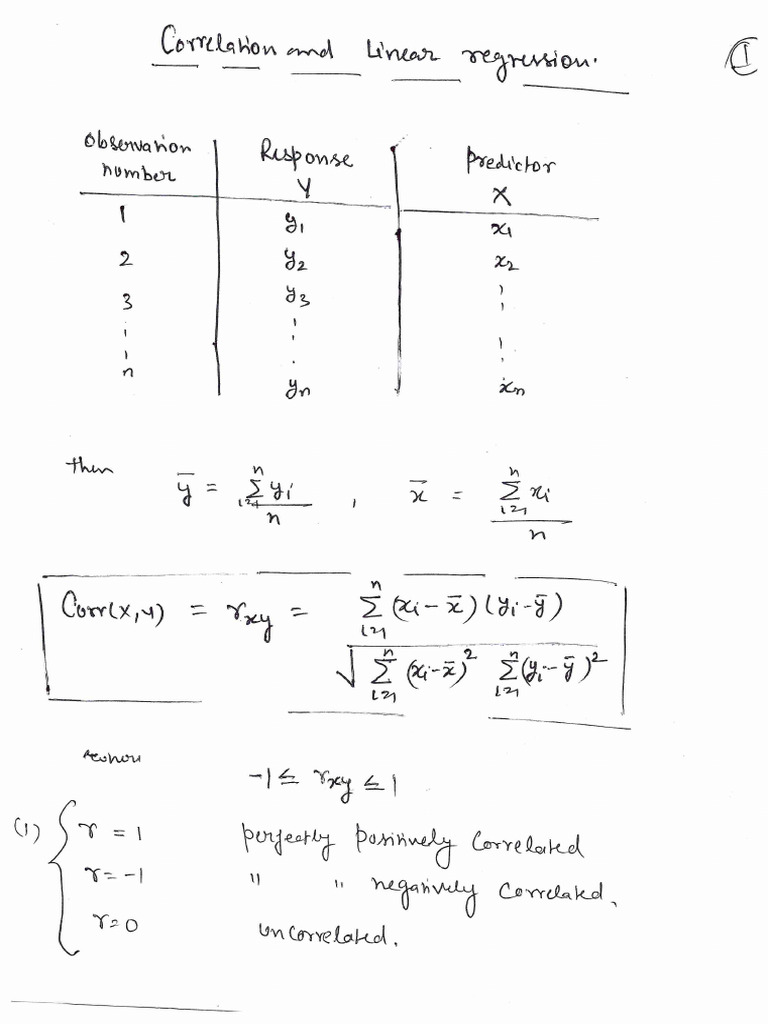 Correlation and Linear regression.
1
Observation number | Response Y | Predictor X
1 | y₁ | x₁
2 | y₂ | x₂
3 | y₃ | ⋮
⋮ | ⋮ | ⋮
n | yₙ | xₙ
then ȳ = Σᵢ₌₁ⁿ yᵢ / n , x̄ = Σᵢ₌₁ⁿ xᵢ / n
Corr(X,Y) = r_xy = Σᵢ₌₁ⁿ (xᵢ - x̄)(yᵢ - ȳ) / √( Σᵢ₌₁ⁿ (xᵢ - x̄)² Σᵢ₌₁ⁿ (yᵢ - ȳ)² )
-1 ≤ r_xy ≤ 1
(1) { r = 1 perfectly positively Correlated
r = -1 " " negatively Correlated,
r = 0 uncorrelated.